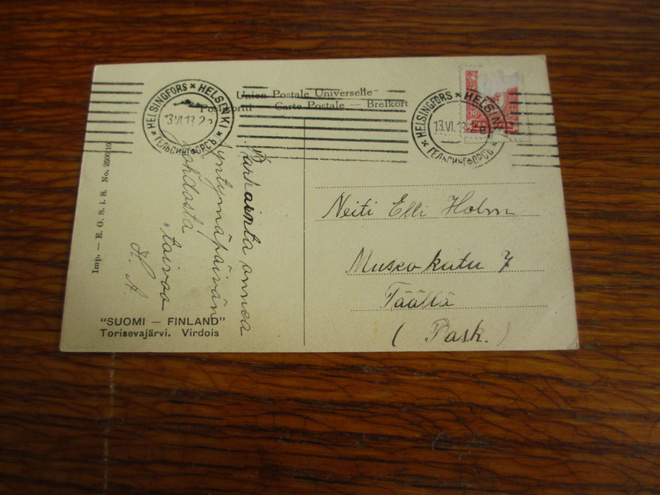 Union Postale Universelle
Postkortti Carte Postale — Brefkort
HELSINGFORS * HELSINKI * ГЕЛЬСИНГФОРСЪ *
13.VI.13.2
HELSINGFORS * HELSINKI * ГЕЛЬСИНГФОРСЪ *
13.VI.13.2
Parhainta onnea
syntymäpäivän
johdosta
toivoo
H. A
Neiti Elli Holm
Museokatu 7
Täällä
( Pask. )
Imp. — E. O. S. i. S. No.
"SUOMI — FINLAND"
Torisevajärvi. Virdois